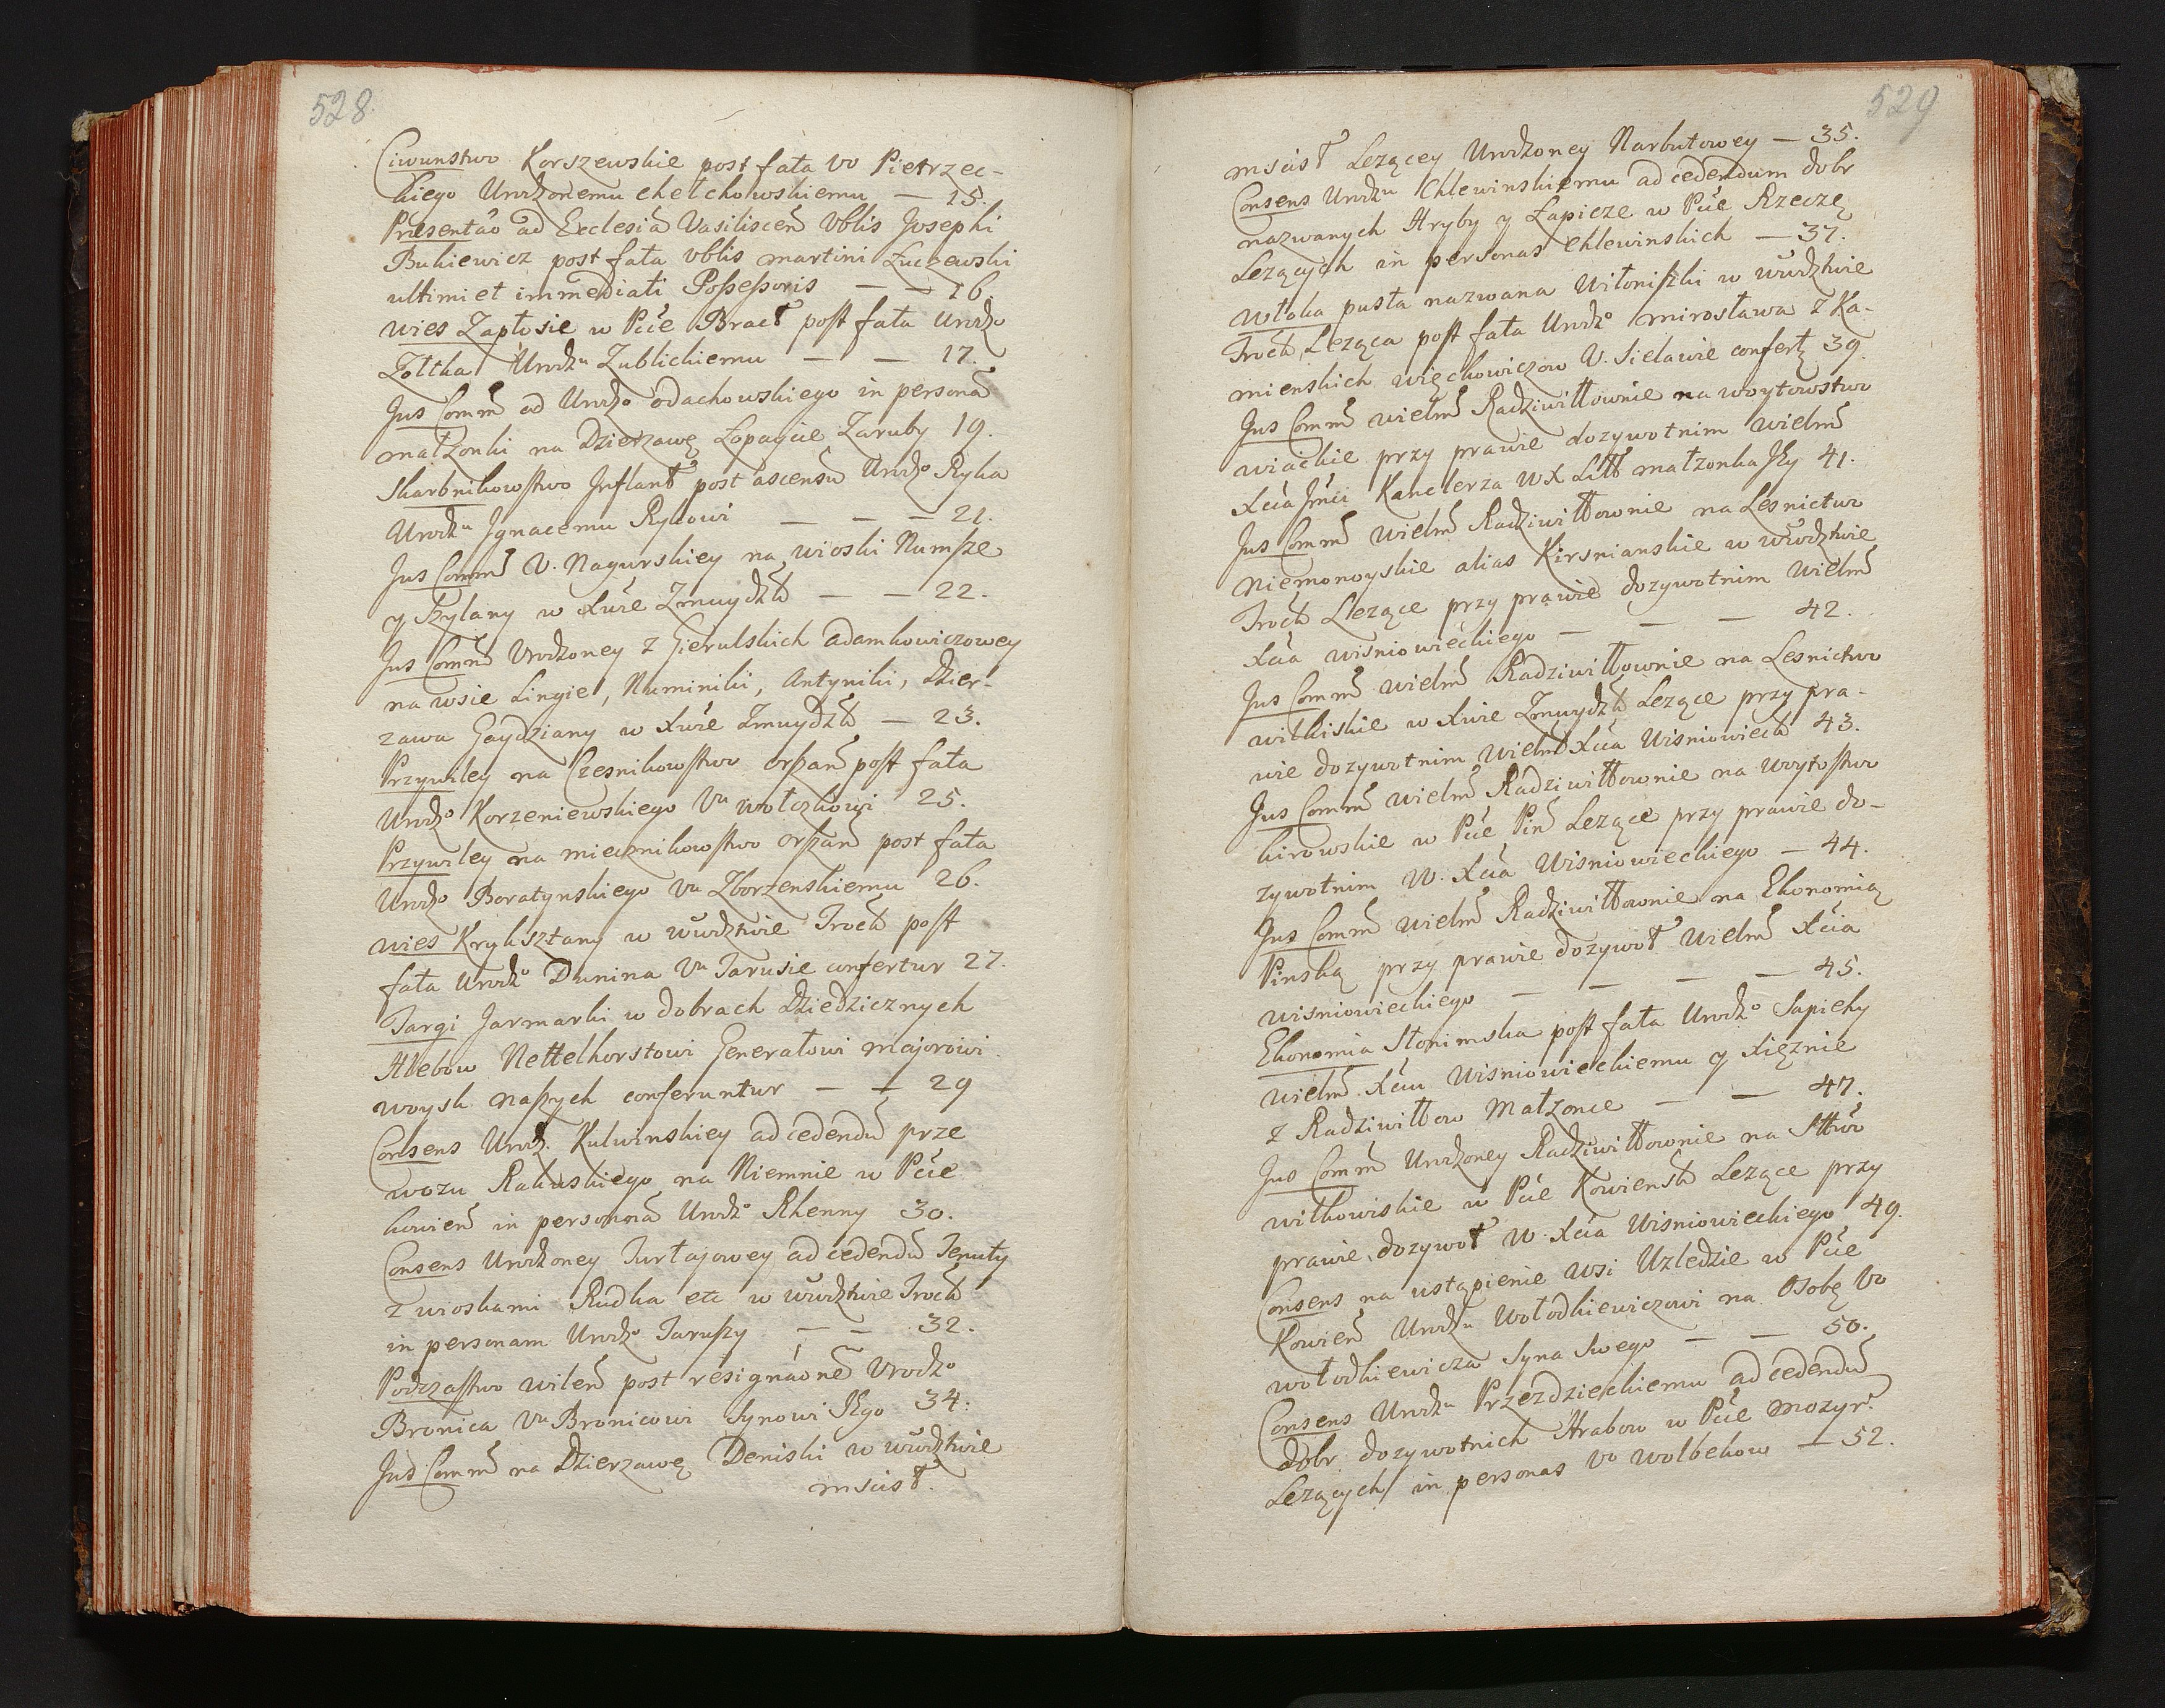 528.
Ciwunstwo Korszewskie post fata Vo Pietrzec-
kiego Urodzonemu Chełchowskiemu — 15.
Præsentao ad Ecclesiã Vasiliscen Vblis Josephi
Bukiewicz post fata Vblis martini Łuczewski
ultimi et immediati Poßeßoris — — 16.
wies Zapłosie w Pcie Bracł post fata Urodzo
Zołtka Urodzu Zublickiemu — — 17.
Jus Comm̃ ad Urodzo Odachowskiego in personã
małzonki na Dzierzawę Łopaycie Zaruby 19.
Skarbnikowstwo Inflant post ascensũ Urodzo Ryka
Urodzu Jgnacemu Rykowi — — — 21.
Jus Comm̃ V. Nagurskiey na wioski Numsze
y Szylany w Xwie Zmuydzk — — 22.
Jus Comm̃ Urodzoney z Gierulskich adamkowiczowey
na wsie Lingie, Numiniki, Antyniki, Dzier-
zawa Gaydziany w Xwie Zmuydzk — 23.
Przywiley na Czesnikowstwo orszan post fata
Urodzo Korzeniewskiego Vu Wołczkowi 25.
Przywiley na miecznikowstwo orszan post fata
Urodzo Boratynskiego Vu Zborzenskiemu 26.
wies Kryksztany w wwdztwie Trock post
fata Urodzo Dunina Vu Jarusie confertur 27.
Targi Jarmarki w dobrach Dziedzicznych
Alebow Nettelhorstowi Generałowi majorowi
woysk naszych conferuntur — — 29
Consens Urodz. Kulwinskiey ad cedendũ prze
wozu Rakuskiego na Niemnie w Pcie
kowien in personã Urodzo Rhenny 30.
Consens Urodzoney Turłajowey ad cedendũ Tenuty
z wioskami Rudka etc w wwdztwie Trock
in personam Urodzo Jaruszy — — 32.
Podczastwo wilen post resignaonẽ Urodzo
Bronica Vu Bronicowi Synowi JEgo 34.
Jus Comm̃ na Dzierzawę Deniski w wwdztwie
mscisł.
529
mscisł Lezącey Urodzoney Narbutowey — 35.
Consens Urodzu Chlewinskiemu ad cedendum dobr
nazwanych Hryby y Łapicze w Pcie Rzeczę
Lezących in personas Chlewinskich — 37.
Włoka pusta nazwana Witoniszki w wwdztwie
Trock Leząca post fata Urodzo mirosława z Ka-
mienskich więckowiczow V. Sielawie confertr 39.
Jus Comm̃ wielm̃ Radziwiłłownie na woytowstwo
wiackie przy prawie dozywotnim wielm̃
Xcia Jmci Kanclerza WX Litt małzonka JEy 41.
Jus Comm̃ wielm̃ Radziwiłłownie na Lesnictwo
Niemonoyskie alias Kirsnianskie w wwdztwie
Trock Lezące przy prawie dozywotnim wielm̃
Xcia wisniowieckiego — — — 42.
Jus Comm̃ wielm̃ Radziwiłłownie na Lesnictwo
wilkiskie w Xwie Zmuydzk Lezące przy pra-
wie dozywotnim wielm̃ Xcia Wisniowieck 43.
Jus Comm̃ wielm̃ Radziwiłłownie na woytostwo
kirowskie w Pcie Pin Lezące przy prawie do-
zywotnim W. Xcia Wisniowieckiego — 44.
Jus Comm̃ wielm̃ Radziwiłłownie na Ekonomię
Pinską przy prawie dozywoł wielm̃ Xcia
wisniowieckiego — — — 45.
Ekonomia Słonimska post fata Urodzo Sapiehy
wielm̃ Xciu Wisniowieckiemu y Xięznie
z Radziwiłłow Małzonce — — 47.
Jus Comm̃ Urodzoney Radziwiłłownie na Sttwo
wilkowiskie w Pcie Kowiensk Lezące przy
prawie dozywoł W. Xcia Wisniowieckiego 49.
Consens na ustąpienie wsi Uzledzie w Pcie
Kowien Urodzu Wołodkiewiczowi na Osobę Vo
wołodkiewicza Syna Swego — — 50.
Consens Urodzu Przezdzieckiemu ad cedendũ
dobr dozywotnich Hrabow w Pcie Mozyr.
Lezących in personas Vo wolbekow — 52.